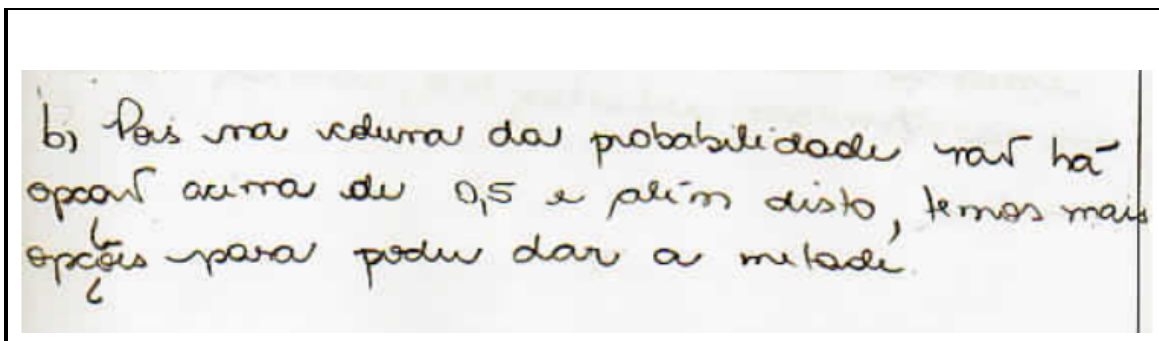 b) Pois na coluna da probabilidade não há
opção acima de 0,5 e além disto, temos mais
opções para poder dar a metade.